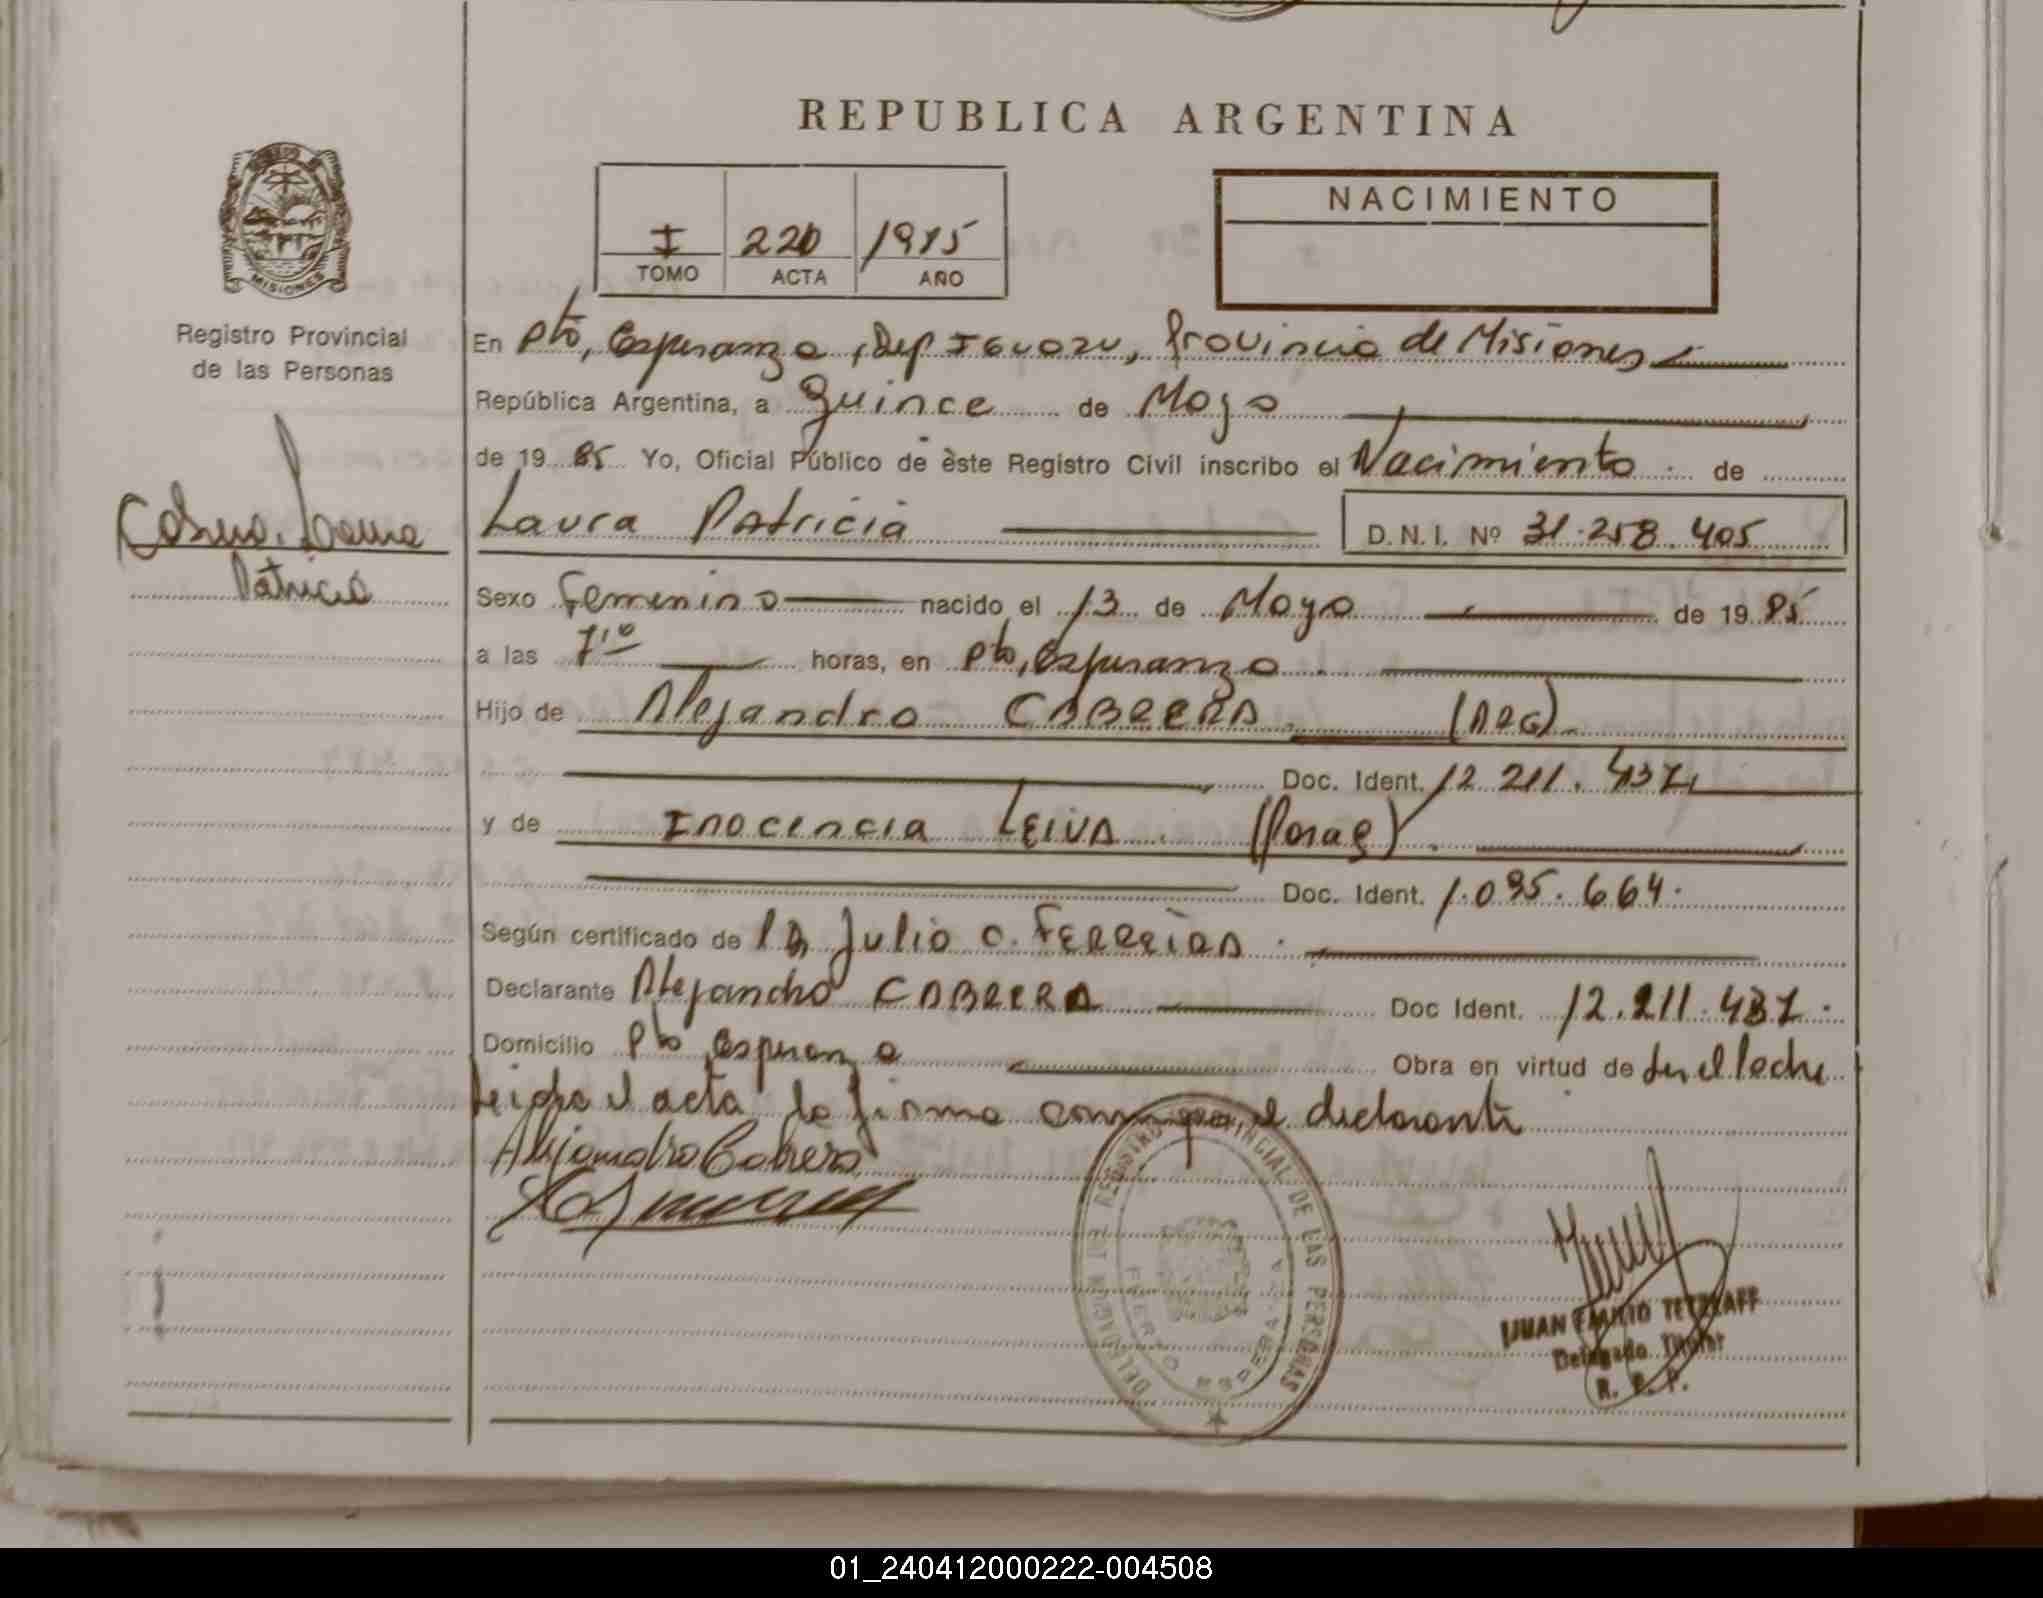 REPUBLICA ARGENTINA
I 220 1985
TOMO ACTA AÑO
NACIMIENTO
MISIONES
Registro Provincial
de las Personas
En Pto, Esperanza, Dep Iguazu, Provincia de Misiones
República Argentina, a Quince de Mayo
de 19 85 Yo, Oficial Público de èste Registro Civil inscribo el Nacimiento de
Laura Patricia D.N.I. Nº 31.258.405
Laura
Patricia
Sexo Femenino nacido el 13 de Mayo de 19 85
a las 7,10 horas, en Pto, Esperanza
Hijo de Alejandro CABRERA. (ARG).
Doc. Ident. 12.211.437,
y de Inocencia LEIVA. (Parag).
Doc. Ident. 1.095.664.
Según certificado de Julio C. FERREIRA.
Declarante Alejandro CABRERA Doc Ident. 12.211.437.
Domicilio Pto, Esperanza Obra en virtud de ser el Padre
Leida el acta la firma conmigo, el declarante
Alejandro Cabrera
DELEGACION REGISTRO PROVINCIAL DE LAS PERSONAS
PUERTO ESPERANZA
JUAN EMILIO TETZLAFF
Delegado Titular
R. P. P.
01_240412000222-004508